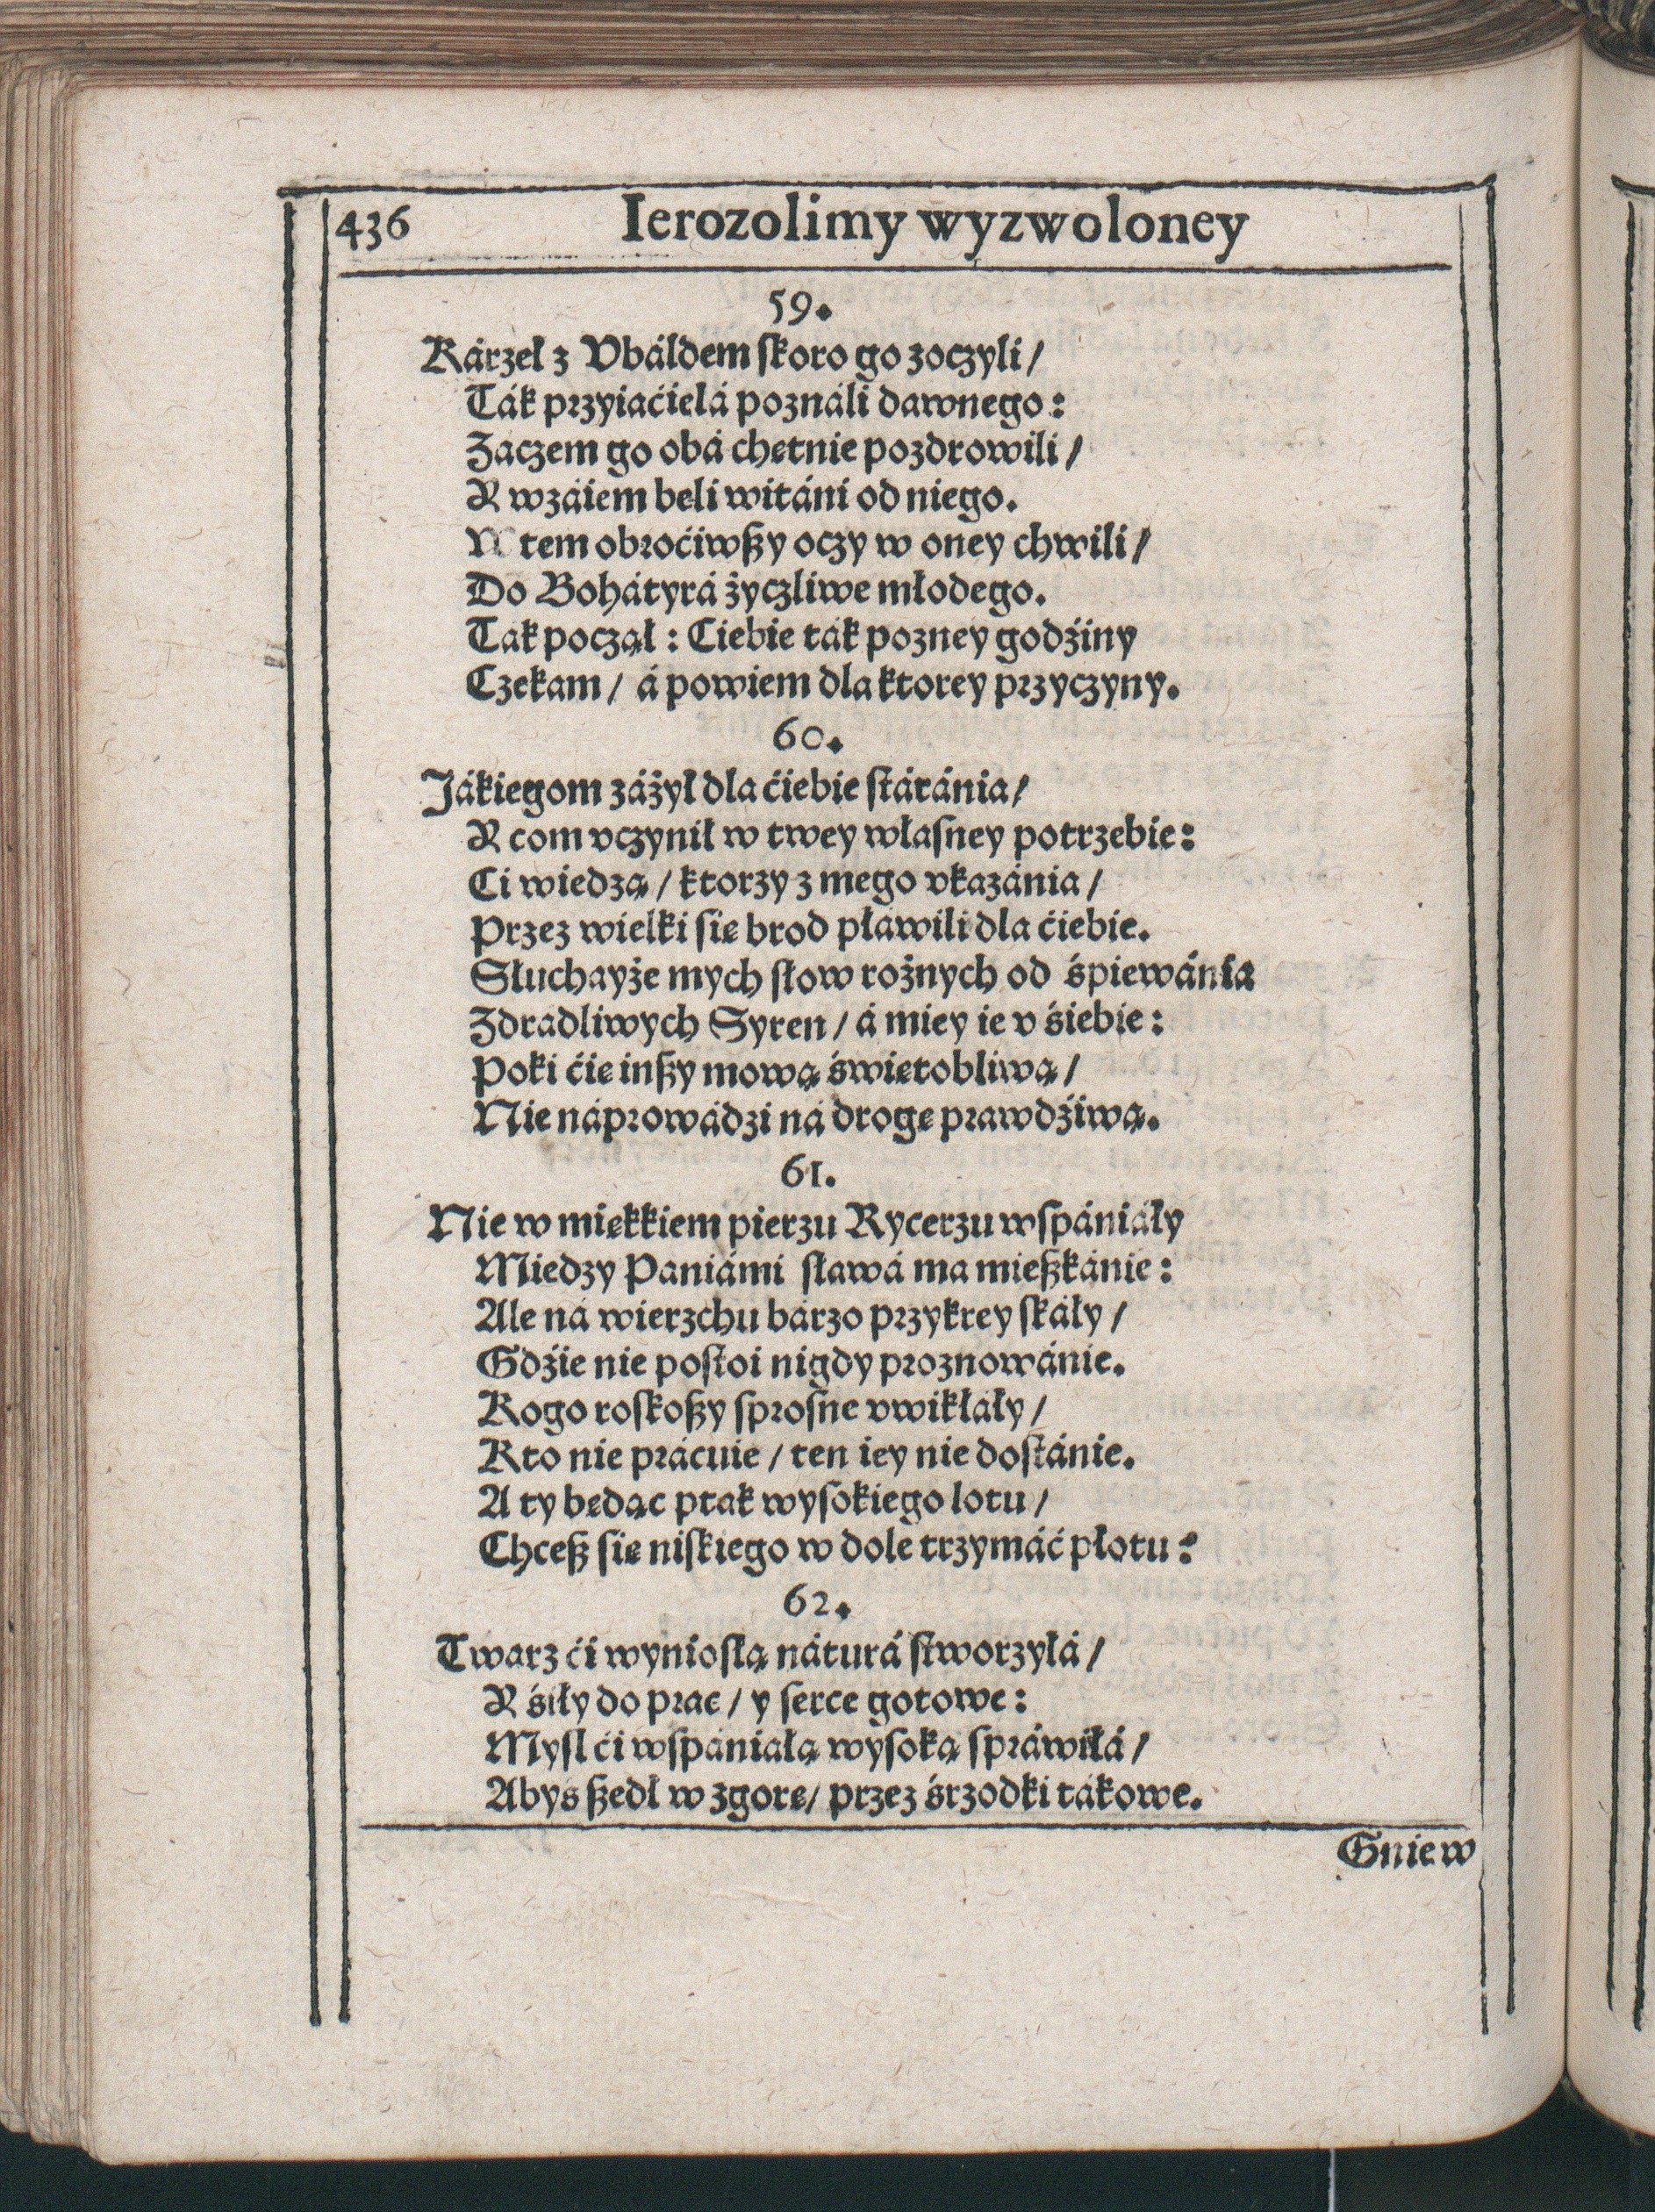 436 Ierozolimy wyzwoloney
59.
Kárzeł z Vbáldem ſkoro go zoczyli/
Ták przyiaćielá poználi dawnego:
Zaczem go obá chętnie pozdrowili/
Y wzáiem beli witáni od niego.
tem obroćiwßy oczy w oney chwili/
Do Bohátyrá życzliwe młodego.
Tak począł: Ciebie ták pozney godźiny
Czekam/ á powiem dla ktorey przyczyny.
60.
Jákiegom záżył dla ćiebie ſtáránia/
Y com vczynił w twey właſney potrzebie:
Ci wiedzą/ ktorzy z mego vkazánia/
Przez wielki ſię brod pławili dla ćiebie.
Słuchayże mych ſłow rożnych od śpiewánia
Zdradliwych Syren/ á miey ie v śiebie:
Poki ćię inßy mową świętobliwą/
Nie náprowádzi ná drogę prawdźiwą.
61.
Nie w miękkiem pierzu Rycerzu wſpániáły
Miedzy Pániámi ſławá ma mießkánie:
Ale ná wierzchu bárzo przykrey ſkáły/
Gdźie nie poſtoi nigdy proznowánie.
Kogo roſkoßy ſproſne vwikłały/
Kto nie prácuie/ ten iey nie doſtánie.
A ty będąc ptak wyſokiego lotu/
Chceß ſię niſkiego w dole trzymáć płotu:
62.
Twarz ći wynioſłą náturá ſtworzyłá/
Y śiły do prac/ y ſerce gotowe:
Myſl ći wſpániałą wyſoką ſpráwiłá/
Abyś ßedł w zgorę/ przez śrzodki tákowe.
Gniew